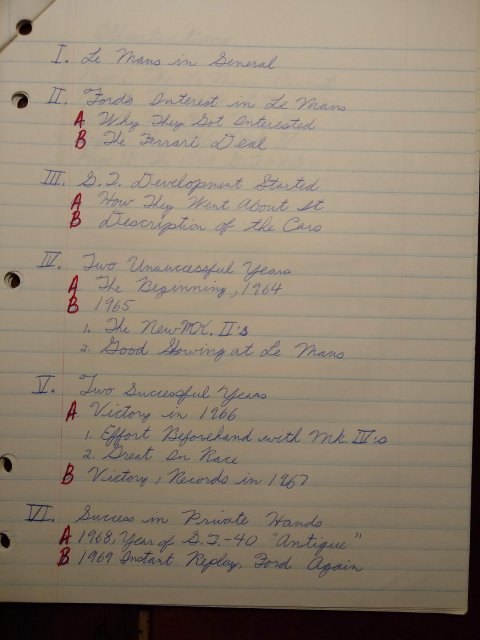 I. Le Mans in General
II. Ford's Interest in Le Mans
A Why They Got Interested
B The Ferrari Deal
III. G.T. Development Started
A How They Went About It
B Description of the Cars
IV. Two Unsuccessful Years
A The Beginning, 1964
B 1965
1. The New MK. II's
2. Good Showing at Le Mans
V. Two Successful Years
A Victory in 1966
1. Effort Beforehand with Mk. IV's
2. Great In Race
B Victory, Records in 1967
VI. Success in Private Hands
A 1968, Year of G.T.-40 "Antique"
B 1969 Instant Replay, Ford Again